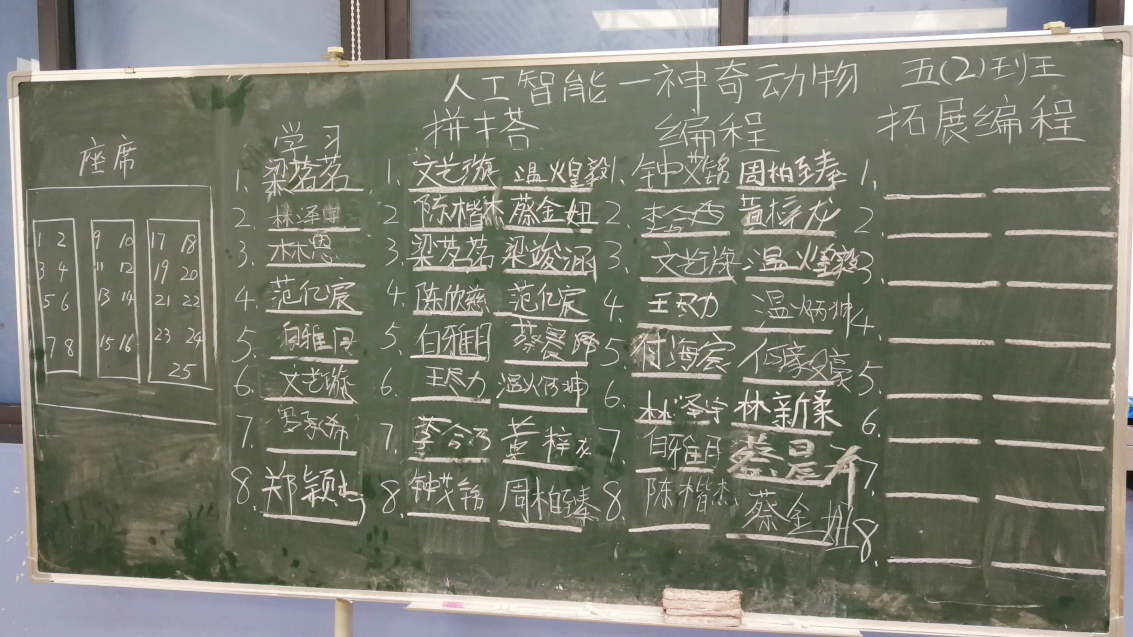 人工智能一神奇动物 五(2)班
座席 学习 拼搭 编程 拓展编程
1. 梁茗茗 1. 文艺璇 温煌毅 1. 钟茂铭 周柏臻 1.
2. 林泽宇 2 陈楷杰 蔡金妞 2. 黄梓龙 2.
3. 林恩 3. 梁茗茗 梁竣涵 3. 文艺璇 温煌毅 3.
4. 范亿宸 4. 陈欣慈 范亿宸 4. 王尽力 温炳坤 4.
5. 白雅日 5. 白雅日 5. 何家豪 5.
6. 文艺璇 6. 王尽力 温炳坤 6. 林泽宇 林新柔 6.
7. 罗承希 7. 黄梓龙 7 白雅日 7.
8. 郑颖 8. 钟茂铭 周柏臻 8 陈楷杰 蔡金妞 8.
1 2 9 10 17 18
3 4 11 12 19 20
5 6 13 14 21 22
7 8 15 16 23 24
25